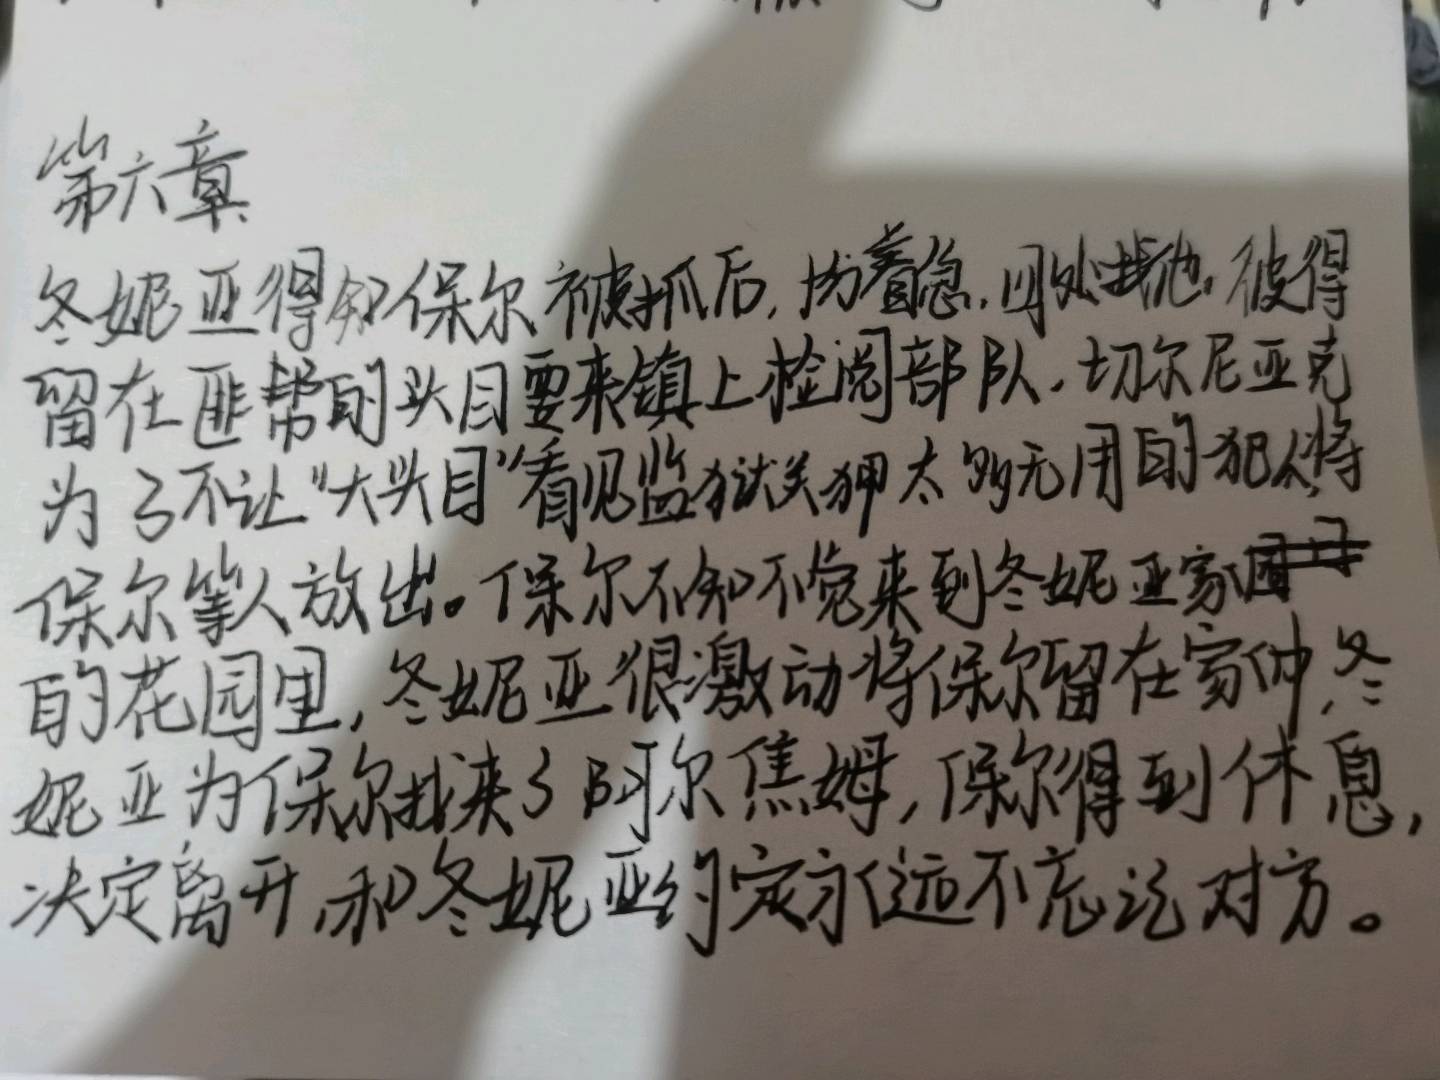 第六章
冬妮亚得知保尔被抓后,十分着急,四处找他,彼得
留在匪帮的头目要来镇上检阅部队,切尔尼亚克
为了不让“大头目”看见监狱关押太多无用的犯人,将
保尔等人放出。保尔不知不觉来到冬妮亚家
的花园里,冬妮亚很激动将保尔留在家中,冬
妮亚为保尔找来了阿尔焦姆,保尔得到休息,
决定离开,和冬妮亚约定永远不忘记对方。